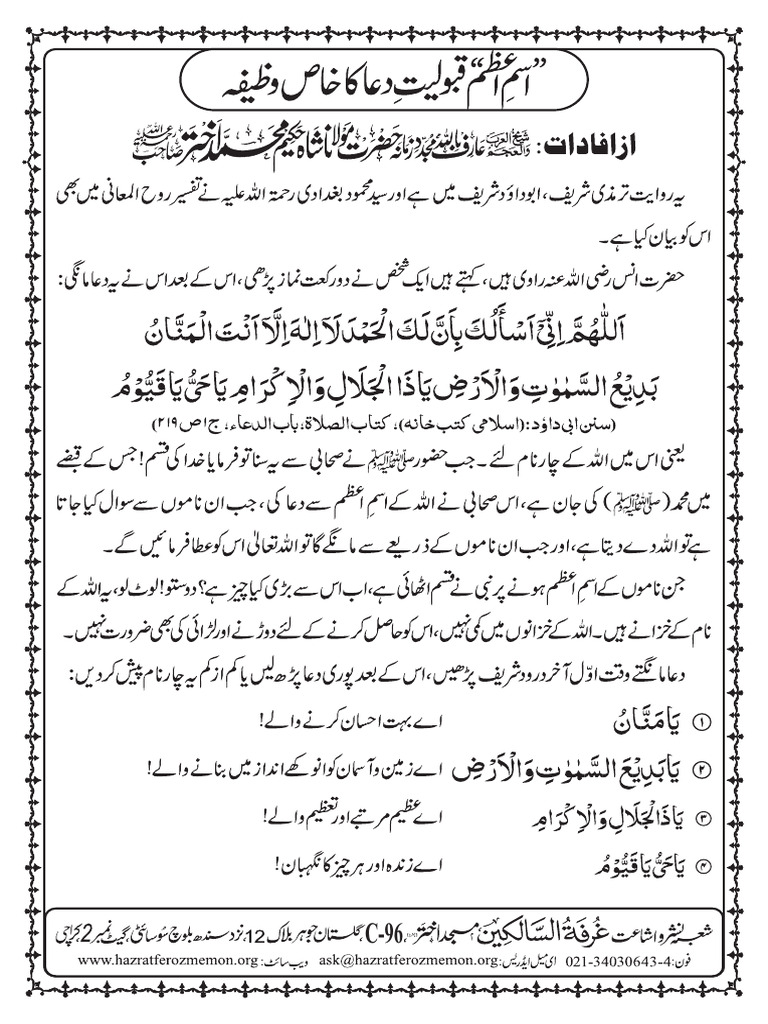 ”اسمِ اعظم“ قبولیتِ دعا کا خاص وظیفہ
از افادات: شیخ العرب والعجم عارف باللہ مجددِ زمانہ حضرت مولانا شاہ حکیم محمد اختر صاحب
یہ روایت ترمذی شریف، ابوداؤد شریف میں ہے اور سید محمود بغدادی رحمۃ اللہ علیہ نے تفسیر روح المعانی میں بھی
اس کو بیان کیا ہے۔
حضرت انس رضی اللہ عنہ راوی ہیں، کہتے ہیں ایک شخص نے دو رکعت نماز پڑھی، اس کے بعد اس نے یہ دعا مانگی:
اَللّٰهُمَّ اِنِّیْٓ اَسْأَلُكَ بِاَنَّ لَكَ الْحَمْدَ لَآ اِلٰهَ اِلَّآ اَنْتَ الْمَنَّانُ
بَدِیْعُ السَّمٰوٰتِ وَالْاَرْضِ یَاذَا الْجَلَالِ وَالْاِكْرَامِ یَاحَیُّ یَاقَیُّوْمُ
(سنن ابی داؤد:(اسلامی کتب خانہ)، کتاب الصلاۃ، باب الدعاء، ج۱ ص ۲۱۹)
یعنی اس میں اللہ کے چار نام لئے۔ جب حضور ﷺ نے صحابی سے یہ سنا تو فرمایا خدا کی قسم! جس کے قبضے
میں محمد (ﷺ) کی جان ہے، اس صحابی نے اللہ کے اسمِ اعظم سے دعا کی، جب ان ناموں سے سوال کیا جاتا
ہے تو اللہ دے دیتا ہے، اور جب ان ناموں کے ذریعے سے مانگے گا تو اللہ تعالیٰ اس کو عطا فرمائیں گے۔
جن ناموں کے اسمِ اعظم ہونے پر نبی نے قسم اٹھائی ہے، اب اس سے بڑی کیا چیز ہے؟ دوستو! لوٹ لو، یہ اللہ کے
نام کے خزانے ہیں۔ اللہ کے خزانوں میں کمی نہیں، اس کو حاصل کرنے کے لئے دوڑنے اور لڑائی کی بھی ضرورت نہیں۔
دعا مانگتے وقت اوّل آخر درود شریف پڑھیں، اس کے بعد پوری دعا پڑھ لیں یا کم از کم یہ چار نام پیش کردیں:
۱ یَا مَنَّانُ اے بہت احسان کرنے والے!
۲ یَا بَدِیْعَ السَّمٰوٰتِ وَالْاَرْضِ اے زمین و آسمان کو انوکھے انداز میں بنانے والے!
۳ یَاذَا الْجَلَالِ وَالْاِكْرَامِ اے عظیم مرتبے اور تعظیم والے!
۴ یَاحَیُّ یَاقَیُّوْمُ اے زندہ اور ہر چیز کا نگہبان!
شعبہ نشر و اشاعت غُرفَۃُ السَّالِکِین مسجد اختر، C-96، گلستان جوہر بلاک 12، نزد سندھ بلوچ سوسائٹی، گیٹ نمبر 2، کراچی
فون: 4-34030643-021 ای میل ایڈریس: ask@hazratferozmemon.org ویب سائٹ: www.hazratferozmemon.org